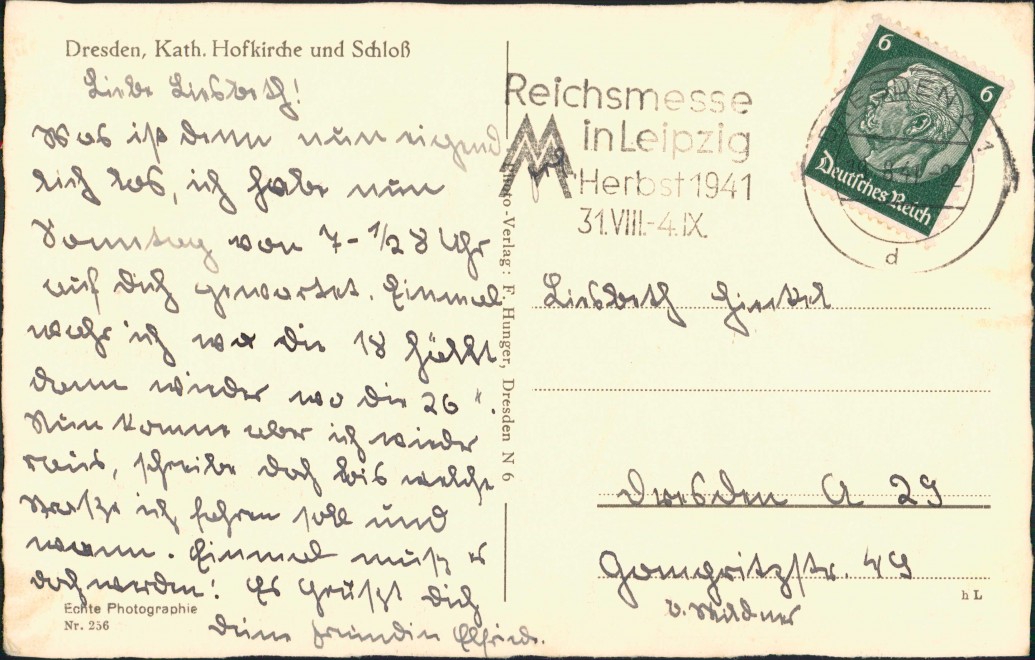 Dresden, Kath. Hofkirche und Schloß
Liebe Liesbeth!
Was ist denn nun eigend-
lich los, ich habe nun
Sonntag von 7-1/2 8 Uhr
auf dich gewartet. Einmal
wahr ich wo die 18 hählt
dann wieder wo die 26 ".
Nun komme aber ich wieder
raus, schreibe doch bis welche
Straße ich fahren soll und
wann. Einmal muß es
doch werden! Es Grüßt dich
deine freundin Elfriede.
Echte Photographie
Nr. 256
Photo-Verlag: F. Hunger, Dresden N 6
Reichsmesse
in Leipzig
Herbst 1941
31.VIII.-4.IX.
DRESDEN
d
6
6
Deutsches Reich
Liesbeth
Dresden A 29
Gomgritzstr. 49
b. Wildner
h L